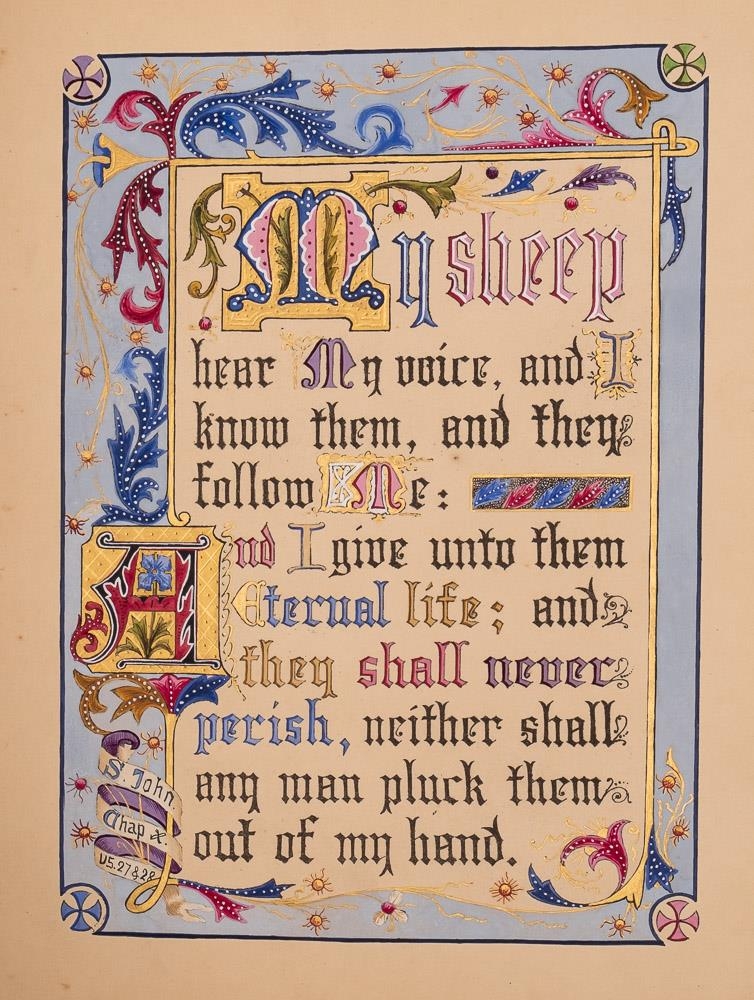 My sheep
hear My voice, and I
know them, and they
follow Me:
And I give unto them
Eternal life; and
they shall never
perish, neither shall
any man pluck them
out of my hand.
S. John
Chap x.
vs. 27 & 28